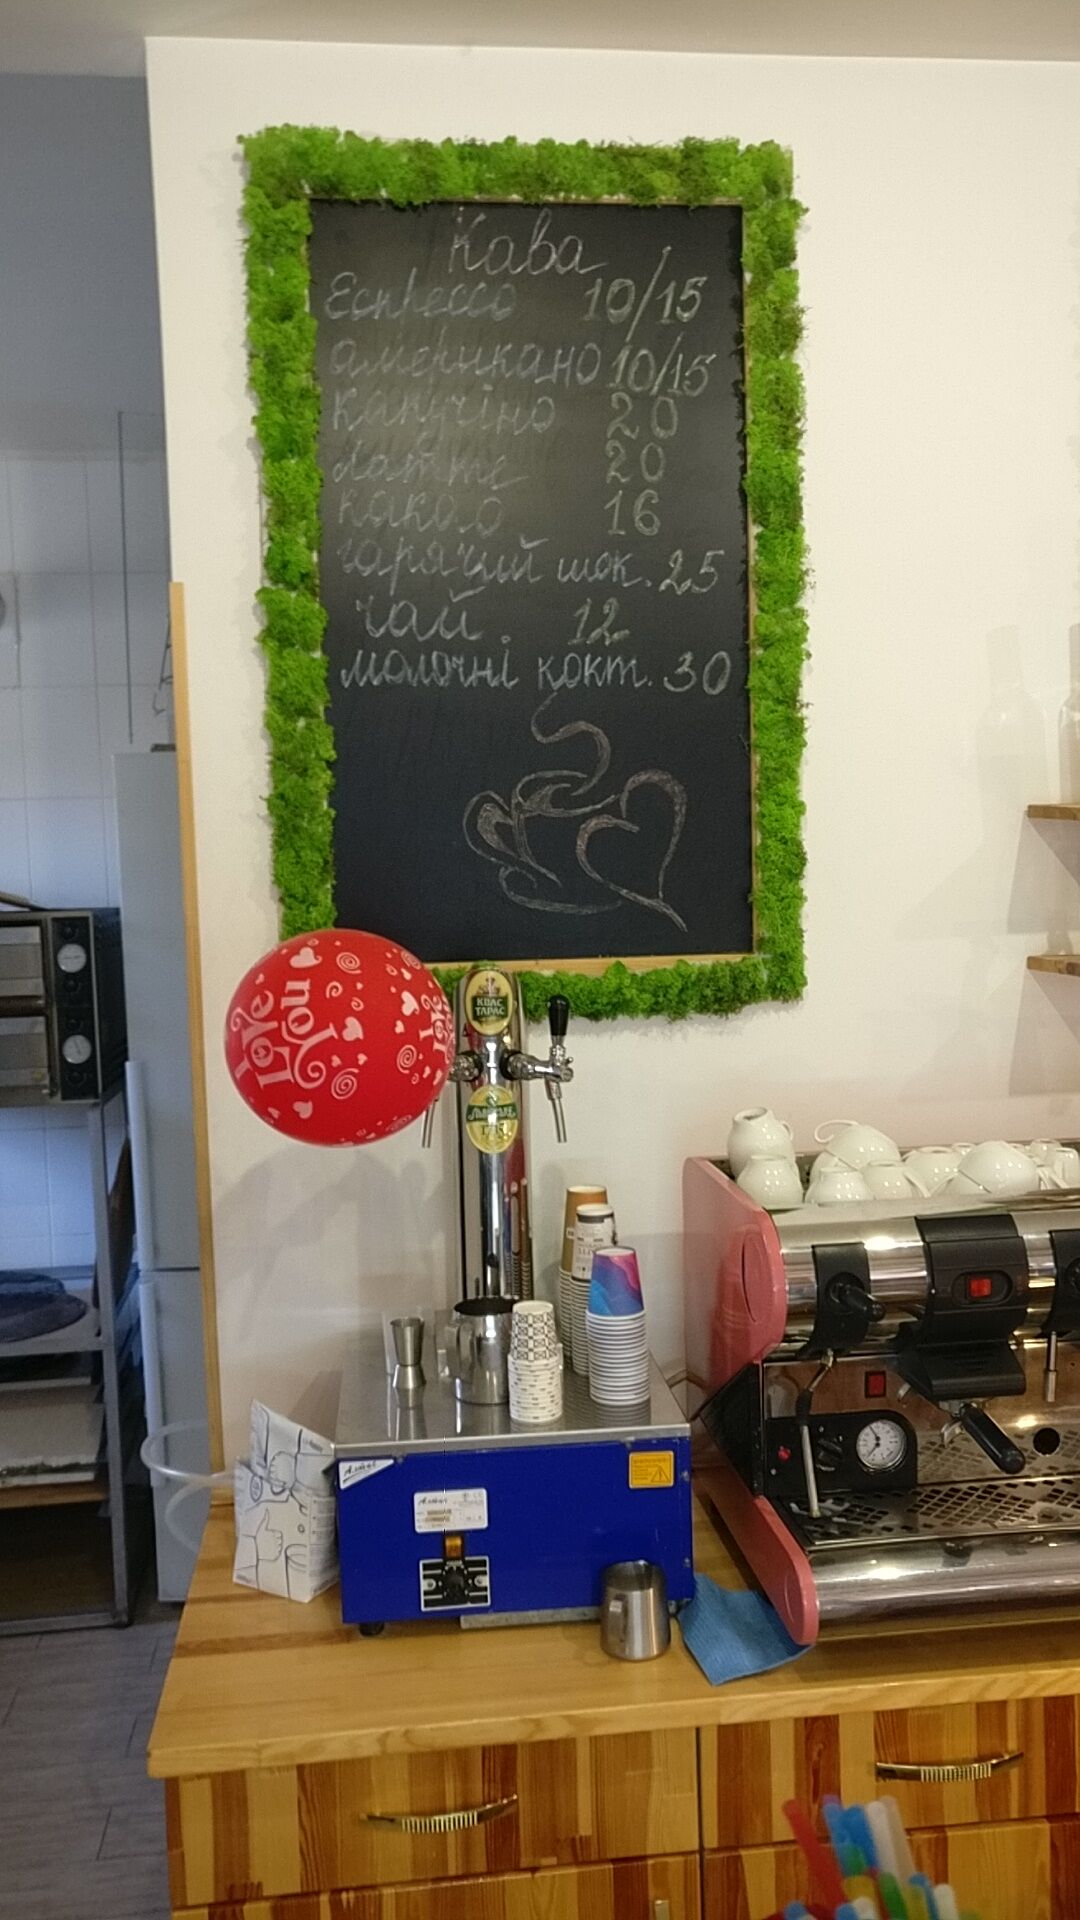 Кава
Еспрессо 10/15
американо 10/15
капучіно 20
латте 20
какао 16
гарячий шок. 25
чай. 12
молочні кокт. 30
Love
You
КВАС
ТАРАС
Львівське
1715